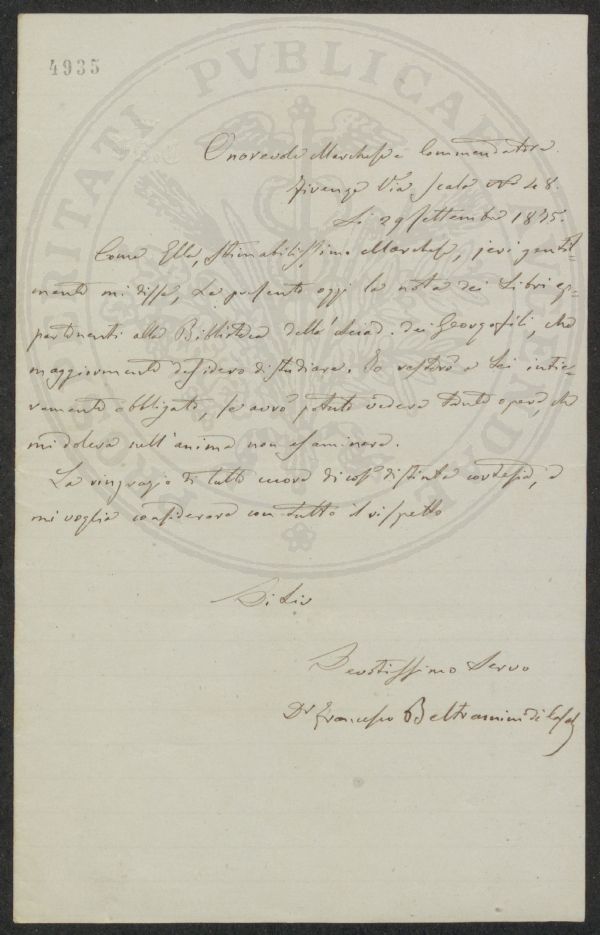 4935
PVBLICAE
Onorevole Marchese e Commendatore.
Firenze Via Scala No 48.
Li 29 Settembre 1875.
Come Ella, Stimabilissimo Marchese, jeri gentil=
mente mi disse, Le presento oggi la nota dei Libri ap=
partenenti alla Biblioteca dell'Accad. dei Georgofili, che
maggiormente desidero di studiare. Io resterò a Lei intie=
ramente obbligato, se avrò potuto vedere tante opere, che
mi doleva nell'anima non esaminare.
La ringrazio di tutto cuore di così distinta cortesia, e
mi voglia considerare con tutto il rispetto
Di Lei
Devotissimo Servo
Dr Francesco Beltramini di